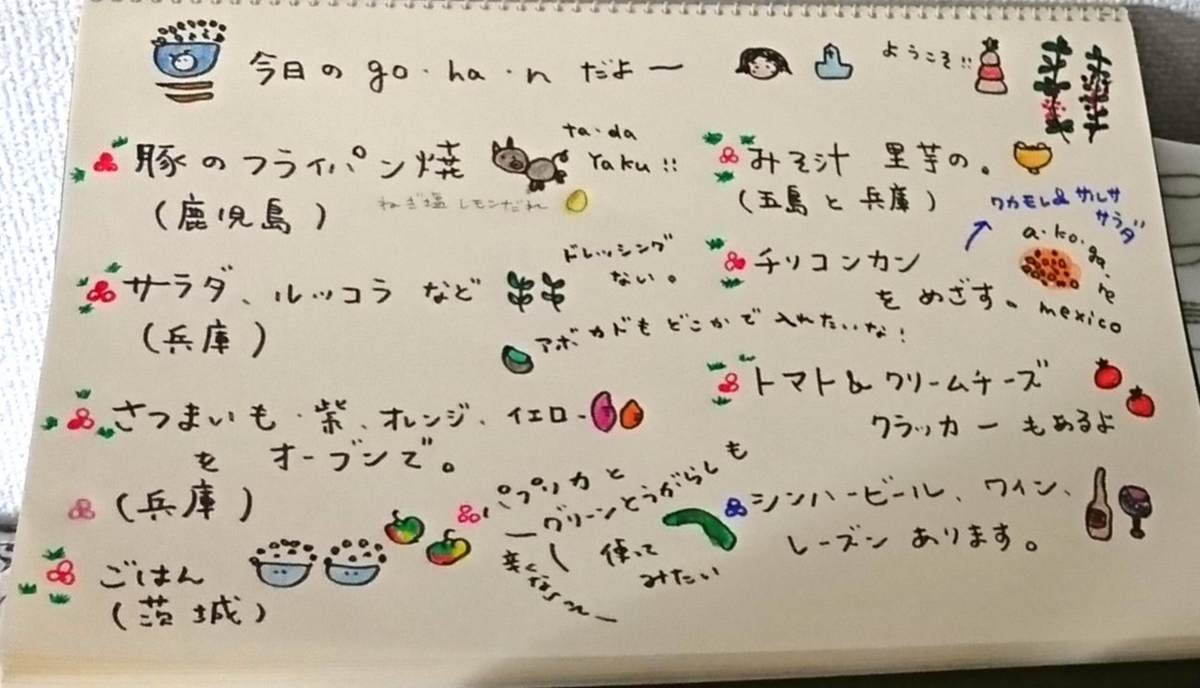 今日の go・ha・n だよー
ようこそ!!
豚のフライパン焼
ta・da
Yaku!!
(鹿児島)
ねぎ塩レモンだれ
サラダ、ルッコラ など
ドレッシング
ない。
(兵庫)
アボカドもどこかで入れたいな!
さつまいも・紫、オレンジ、イエロー
を オーブンで。
(兵庫)
ごはん
(茨城)
パプリカと
グリーンとうがらしも
使って
みたい
辛くない
みそ汁 里芋の。
(五島と兵庫)
ワカモレ&サルサ
サラダ
チリコンカン
を めざす。
a・ko・ga・re
mexico
トマト&クリームチーズ
クラッカー もあるよ
シンハービール、ワイン、
レーズン あります。